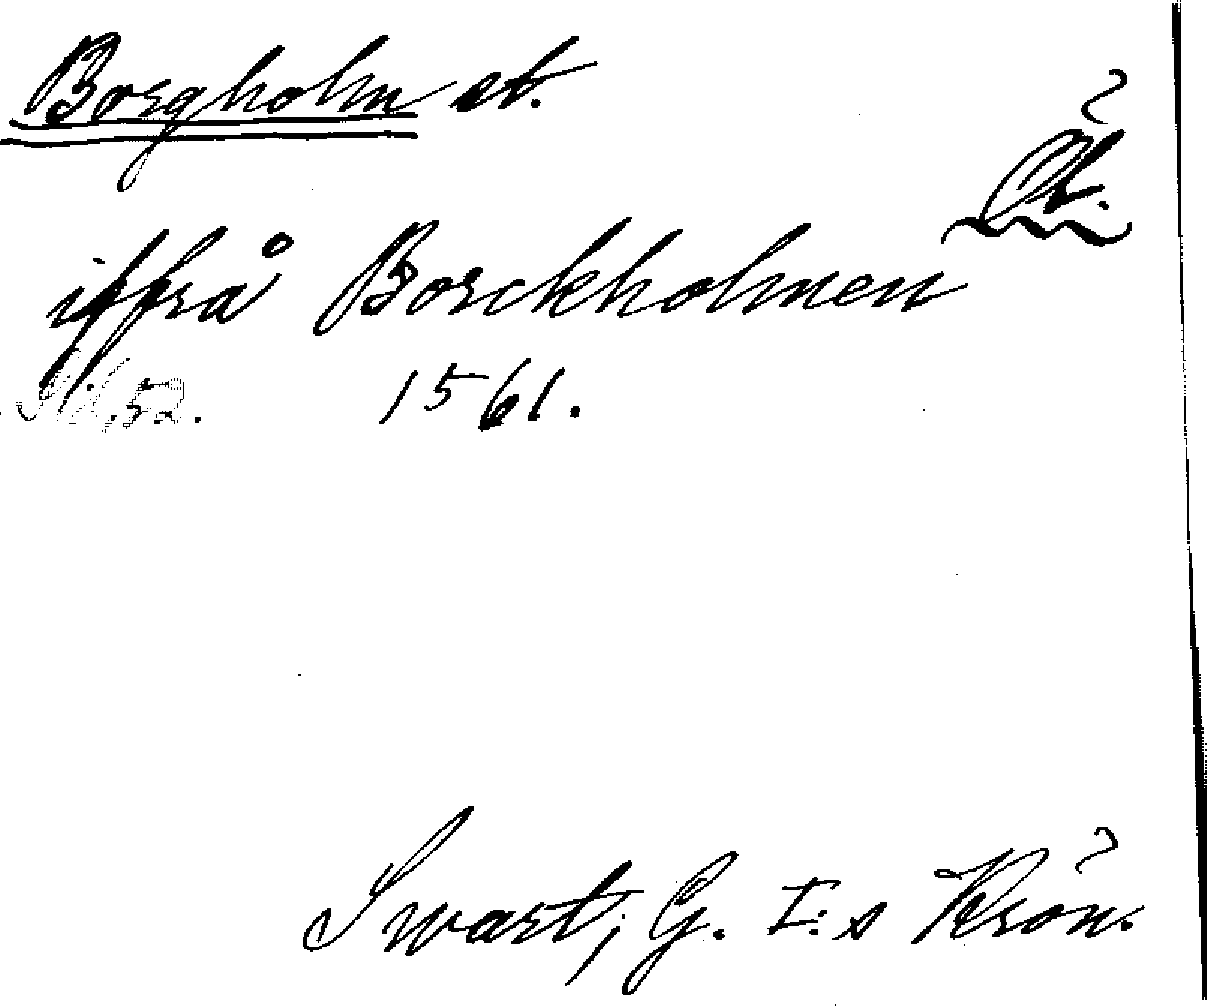 Borgholm st.
Öl.
iffrå Borckholmen
1561.
Swart, G. I:s Krön.